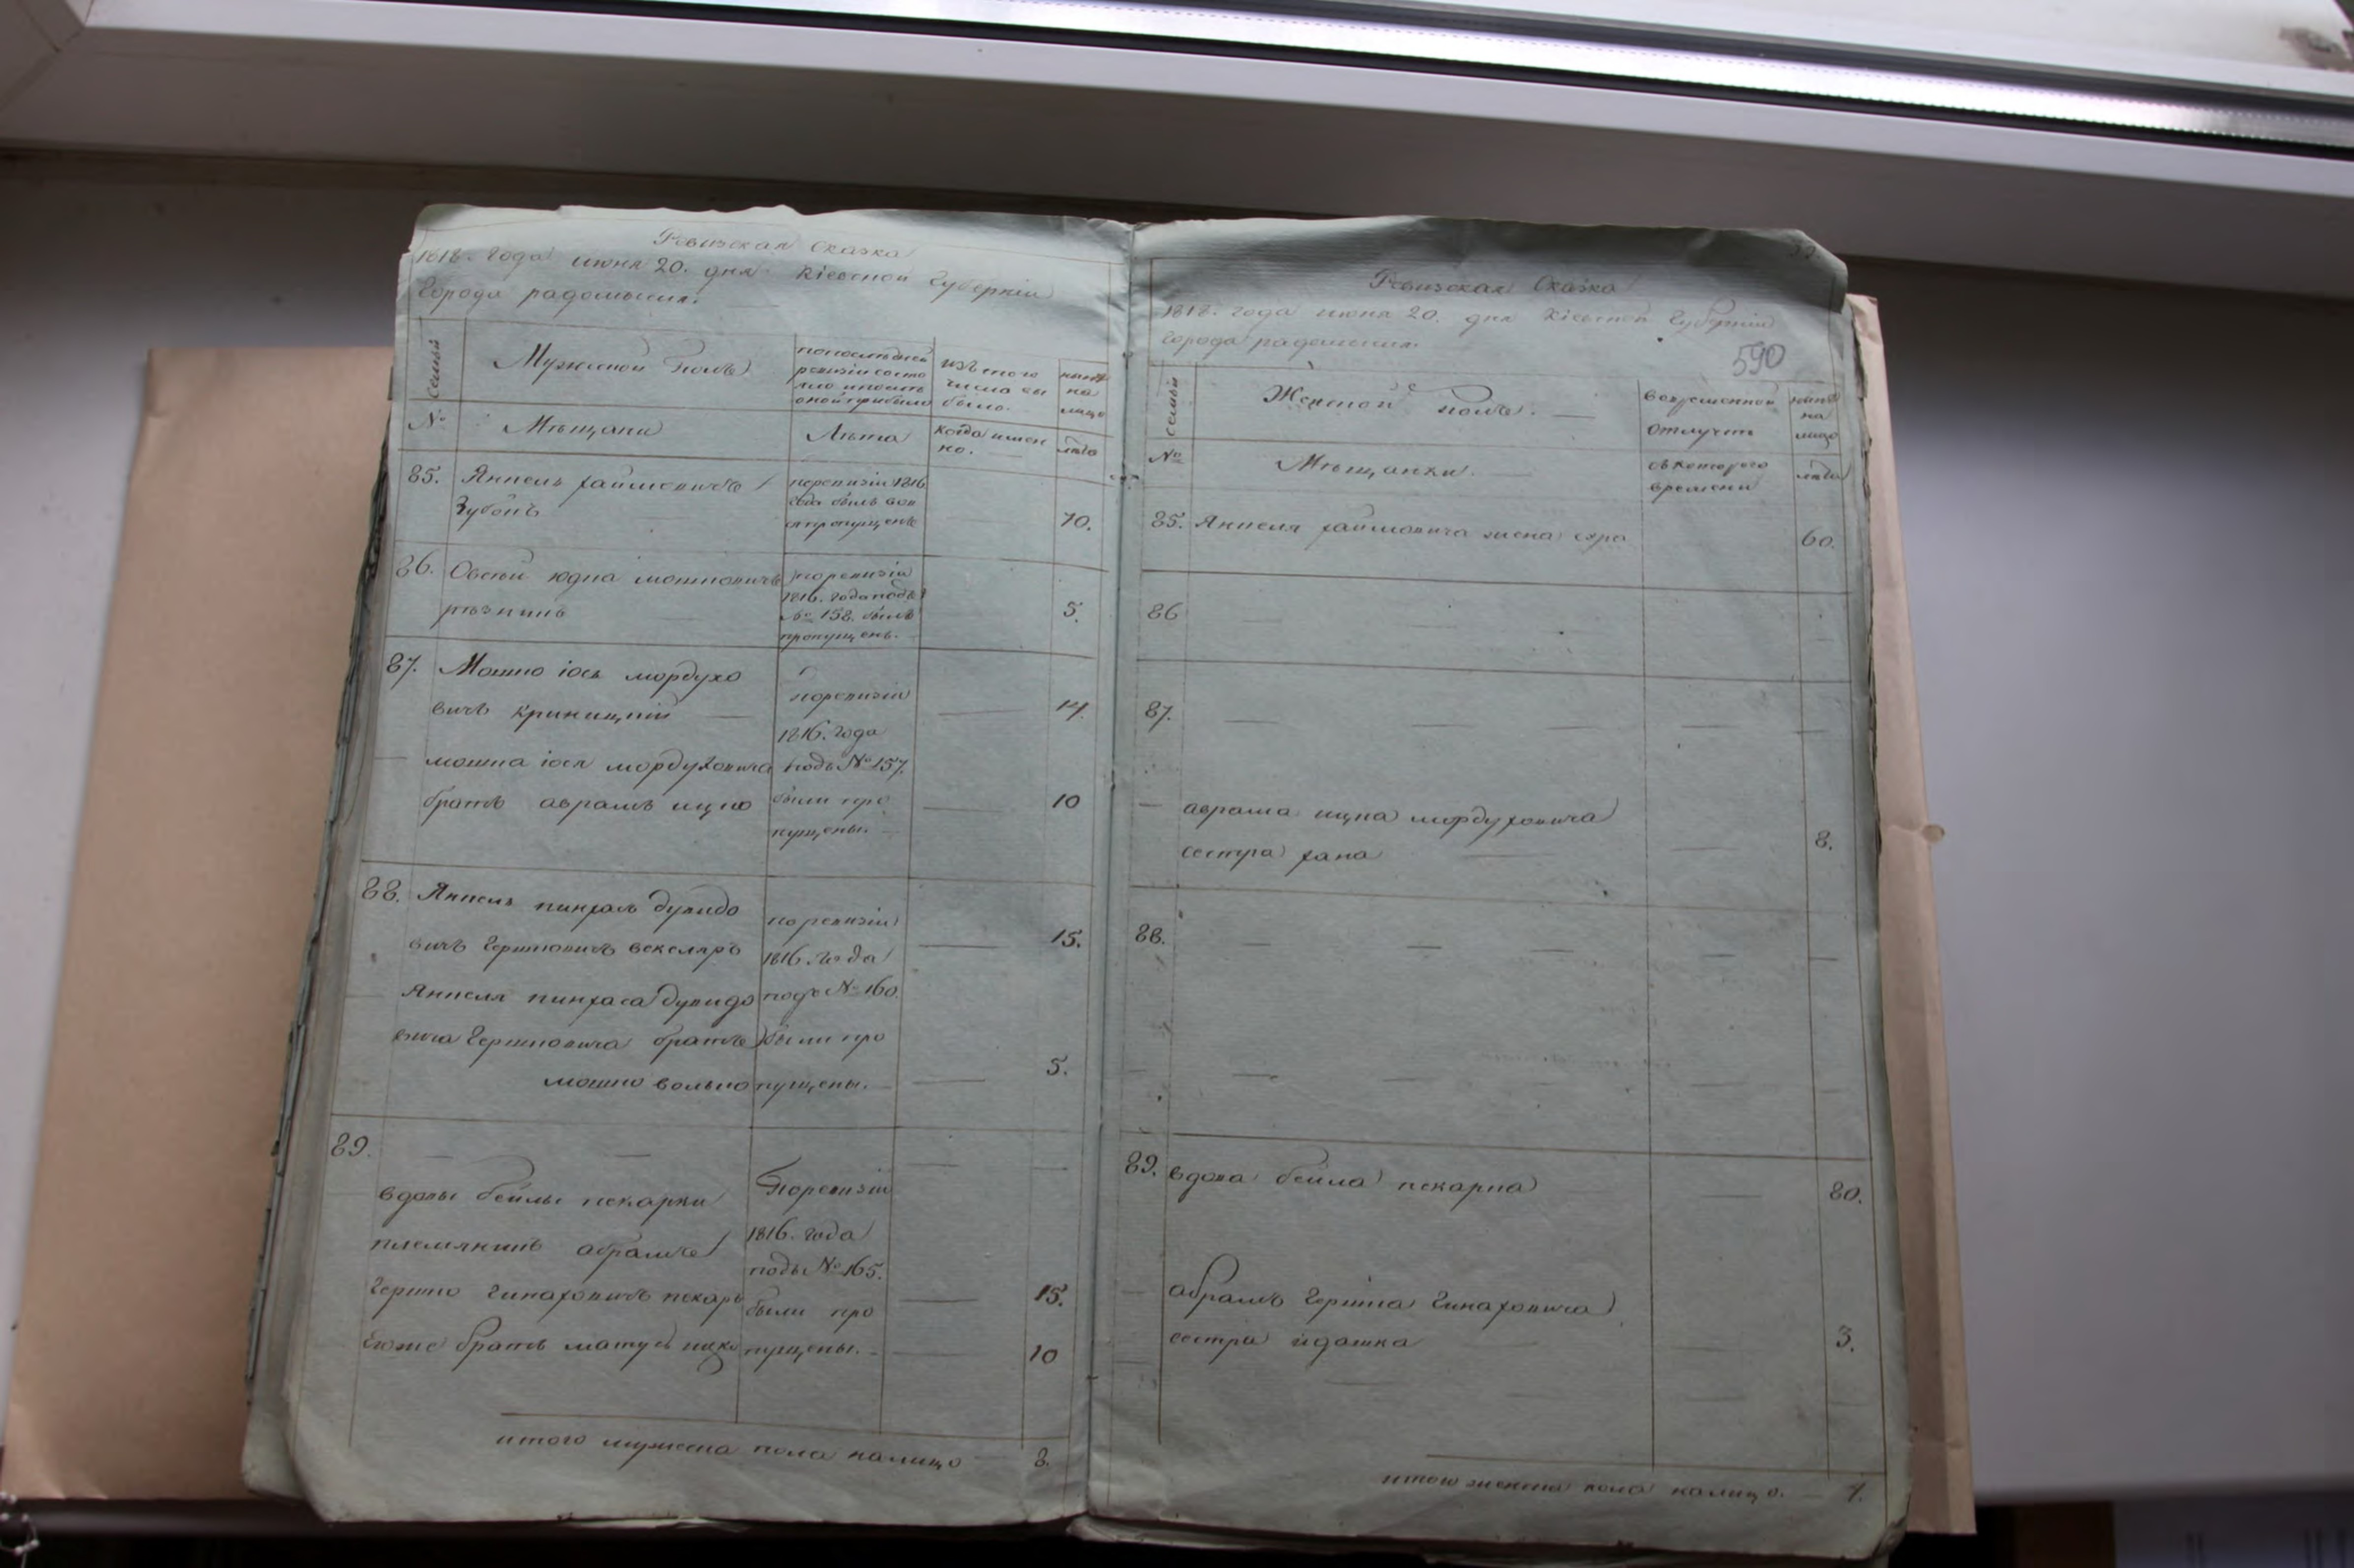 Ревизская Сказка
1818. года июня 20. дня Кіевской Губерніи
города радомысля.
семьи
Мужеской Полъ
попоследней
ревизіи состо
яло и после
оной прибыло
изъ того
числа вы
было.
ныне
на
лицо
№
Мещане
Лета
когда имен
но.
лета
85. Янкель хаймовичъ
Зубокъ
поревизіи 1816
года былъ
пропущенъ
70.
86. Овсей юдка мошковичъ
резникъ
поревизіи
1816. года подъ
№ 158. былъ
пропущенъ.
5.
87. Мошко іось мордухо
вичъ криницкій
14.
мошка іося мордуховича
братъ аврамъ ицко
10
поревизіи
1816. года
подъ № 157.
были про
пущены.
88. Янкель пинхасъ дувидо
вичъ Гершковичъ векслеръ
15.
Янкеля пинхаса дувидо
вича Гершковича братъ
мошко волько
5.
поревизіи
1816. года
подъ № 160.
были про
пущены.
89.
вдовы бейлы пекарки
племянникъ абрамъ
Гершко Гинаховичъ пекарь
15.
Егоже братъ матус
10
Поревизіи
1816. года
подъ № 165.
были про
пущены.
итого мужеска пола налицо 8.
Ревизская Сказка
1818. года июня 20. дня Кіевской Губерніи
города радомысля.
590
семьи
Женской полъ.
вовременной
отлучке
ныне
на
лицо
№
Мещанки.
съ котораго
времени
лета
85. Янкеля хаймовича жена сура
60.
86
87.
аврама ицка мордуховича
сестра хана
8.
88.
89. вдова бейла пекарка
80.
абрамъ Гершка Гинаховича
сестра идашка
3.
итого женска пола налицо. 4.